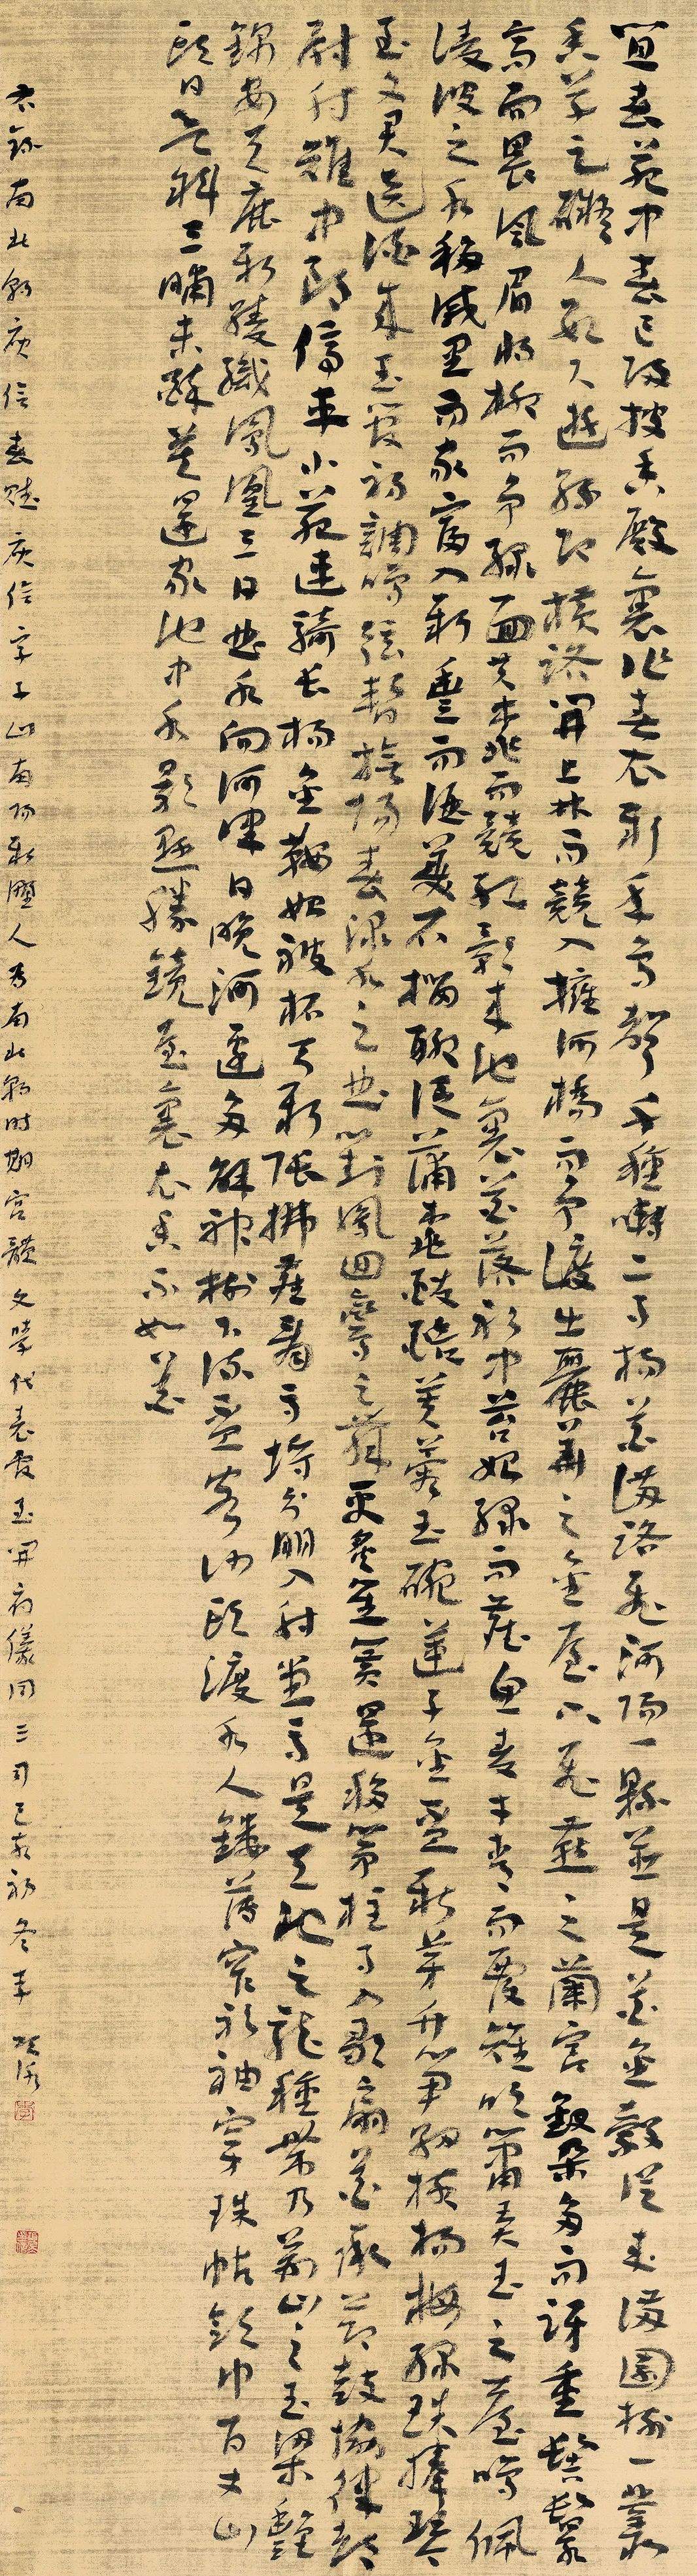 宜春苑中春已歸披香殿裏作春衣新年鳥聲千種囀二月楊花滿路飛河陽一縣並是花金谷從來滿園樹一叢
香草足礙人數尺遊絲即橫路開上林而競入擁河橋而爭渡出麗華之金屋下飛燕之蘭宮釵朵多而訝重髻鬟
高而畏風眉將柳而爭綠面共桃而競紅影來池裏花落衫中苔始綠而藏魚麥才青而覆雉吹簫弄玉之臺鳴佩
淩波之水移戚里而家富入新豐而酒美石榴聊泛蒲桃醱醅芙蓉玉碗蓮子金盃新芽竹筍細核楊梅綠珠捧琴
至文君送酒來玉管初調鳴弦暫撫陽春淥水之曲對鳳迴鸞之舞更炙笙簧還移箏柱月入歌扇花承節鼓協律都
尉射雉中郎停車小苑連騎長楊金鞍始被柘弓新張拂塵看馬埒分明入射堂馬是天池之龍種帶乃荊山之玉梁艷
錦安天鹿新綾織鳳凰三日曲水向河津日晚河邊多解神樹下流盃客沙頭渡水人鏤薄窄衫袖穿珠帖領巾百丈山
頭日欲斜三晡未醉莫還家池中水影懸勝鏡屋裏衣香不如花
右錄南北朝庾信春賦庾信字子山南陽新野人為南北朝時期宮體文學代表官至開府儀同三司己亥初冬